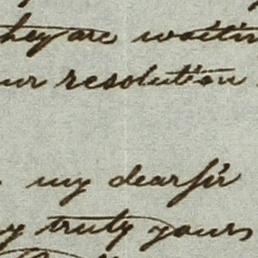 they are waitin
ur resolution
my dear sir
y truly yours